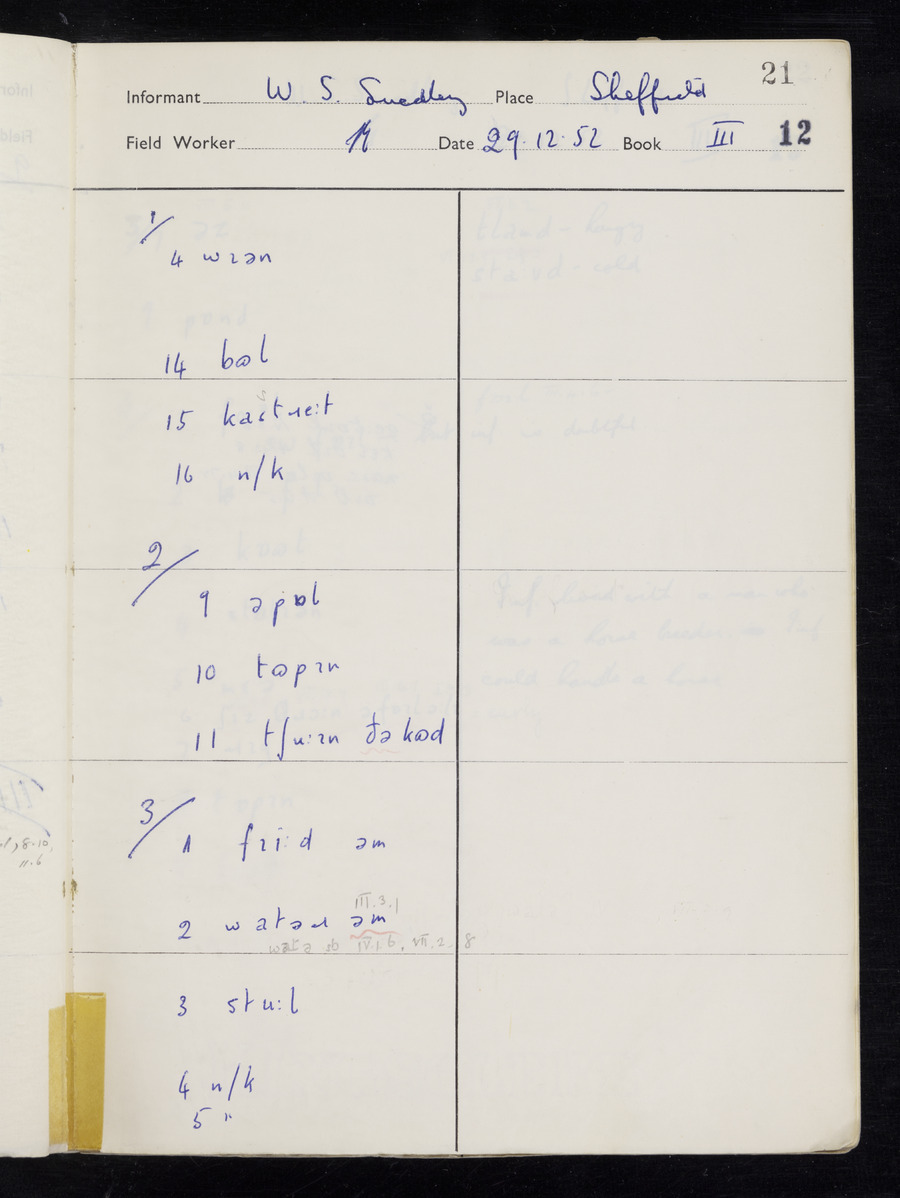 21
Informant W. S. Smedley Place Sheffield
Field Worker Date 29.12.52 Book III 12
1/
4 wɪən
14 bɷl
15 kastɹeːt
16 n/k
2/
9 əpɷl
10 tɷpɪn
11 tʃuːɪn ðə kɷd
3/
1 friːd əm
III.3.1
2 watəɹ əm
IV.1.6, VII.2.8
3 stuːl
4 n/k
5 "